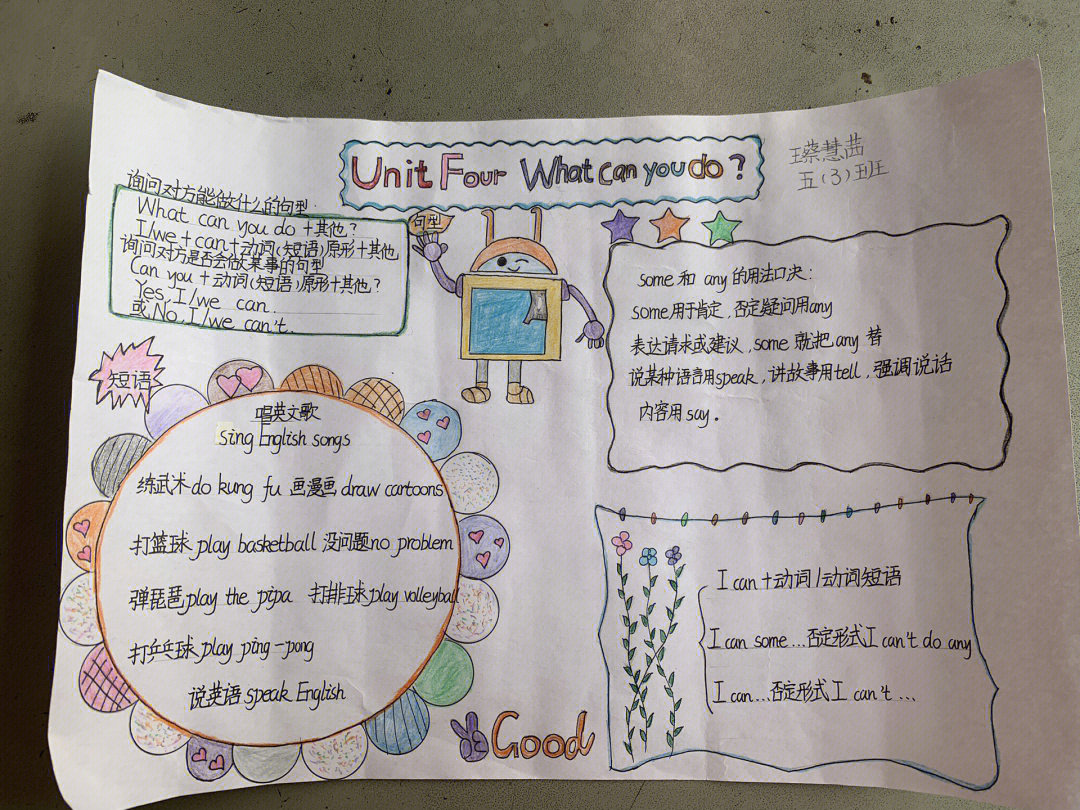 Unit Four What can you do?
蔡慧茜
五(3)班
询问对方能做什么的句型:
What can you do +其他?
I/we+can+动词(短语)原形+其他
询问对方是否会做某事的句型
Can you +动词(短语)原形+其他?
Yes, I/we can.
或No, I/we can't.
句型
some 和 any 的用法口决:
some用于肯定,否定疑问用any
表达请求或建议,some 就把any 替
说某种语言用speak,讲故事用tell,强调说话
内容用 say。
短语
唱英文歌
sing English songs
练武术 do kung fu 画漫画 draw cartoons
打篮球 play basketball 没问题no problem
弹琵琶play the pipa 打排球play volleyball
打乒乓球 play ping-pong
说英语 speak English
I can +动词/动词短语
I can some...否定形式I can't do any
I can...否定形式 I can't ...
Good